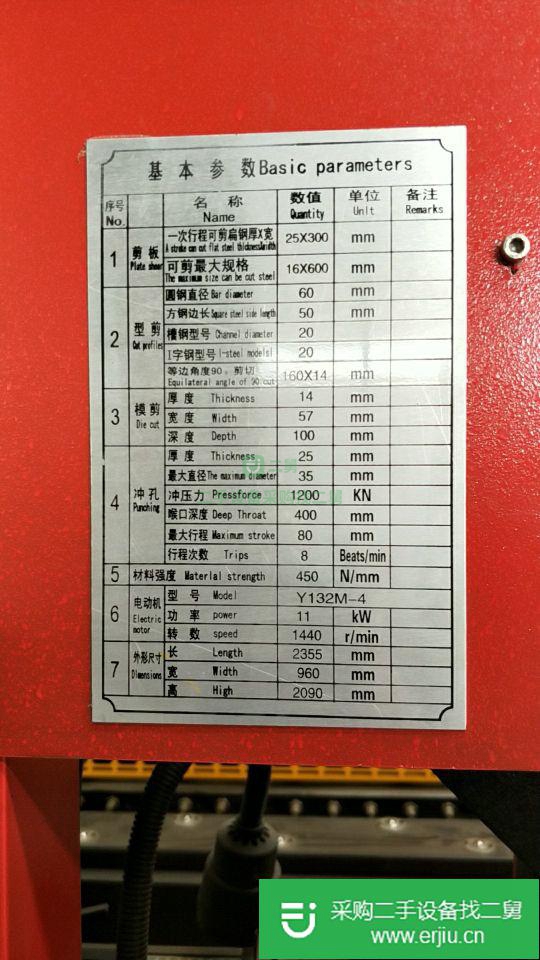 基本参数Basic parameters
序号 No. 名称 Name 数值 Quantity 单位 Unit 备注 Remarks
1 剪板 Plate shear 一次行程可剪扁钢厚X宽 25X300 mm
可剪最大规格 The maximum size can be cut steel 16X600 mm
2 型剪 Cut profiles 圆钢直径 Bar diameter 60 mm
方钢边长 Square steel side length 50 mm
槽钢型号 Channel diameter 20
I字钢型号 I-steel models 20
等边角度90。剪切 Equilateral angle of 90 cut 160X14 mm
3 模剪 Die cut 厚度 Thickness 14 mm
宽度 Width 57 mm
深度 Depth 100 mm
4 冲孔 Punching 厚度 Thickness 25 mm
最大直径 The maximum diameter 35 mm
冲压力 Pressforce 1200 KN
喉口深度 Deep Throat 400 mm
最大行程 Maximum stroke 80 mm
行程次数 Trips 8 Beats/min
5 材料强度 Material strength 450 N/mm
6 电动机 Electric motor 型号 Model Y132M-4
功率 power 11 kW
转数 speed 1440 r/min
7 外形尺寸 Dimensions 长 Length 2355 mm
宽 Width 960 mm
高 High 2090 mm
采购二手设备找二舅
www.erjiu.cn